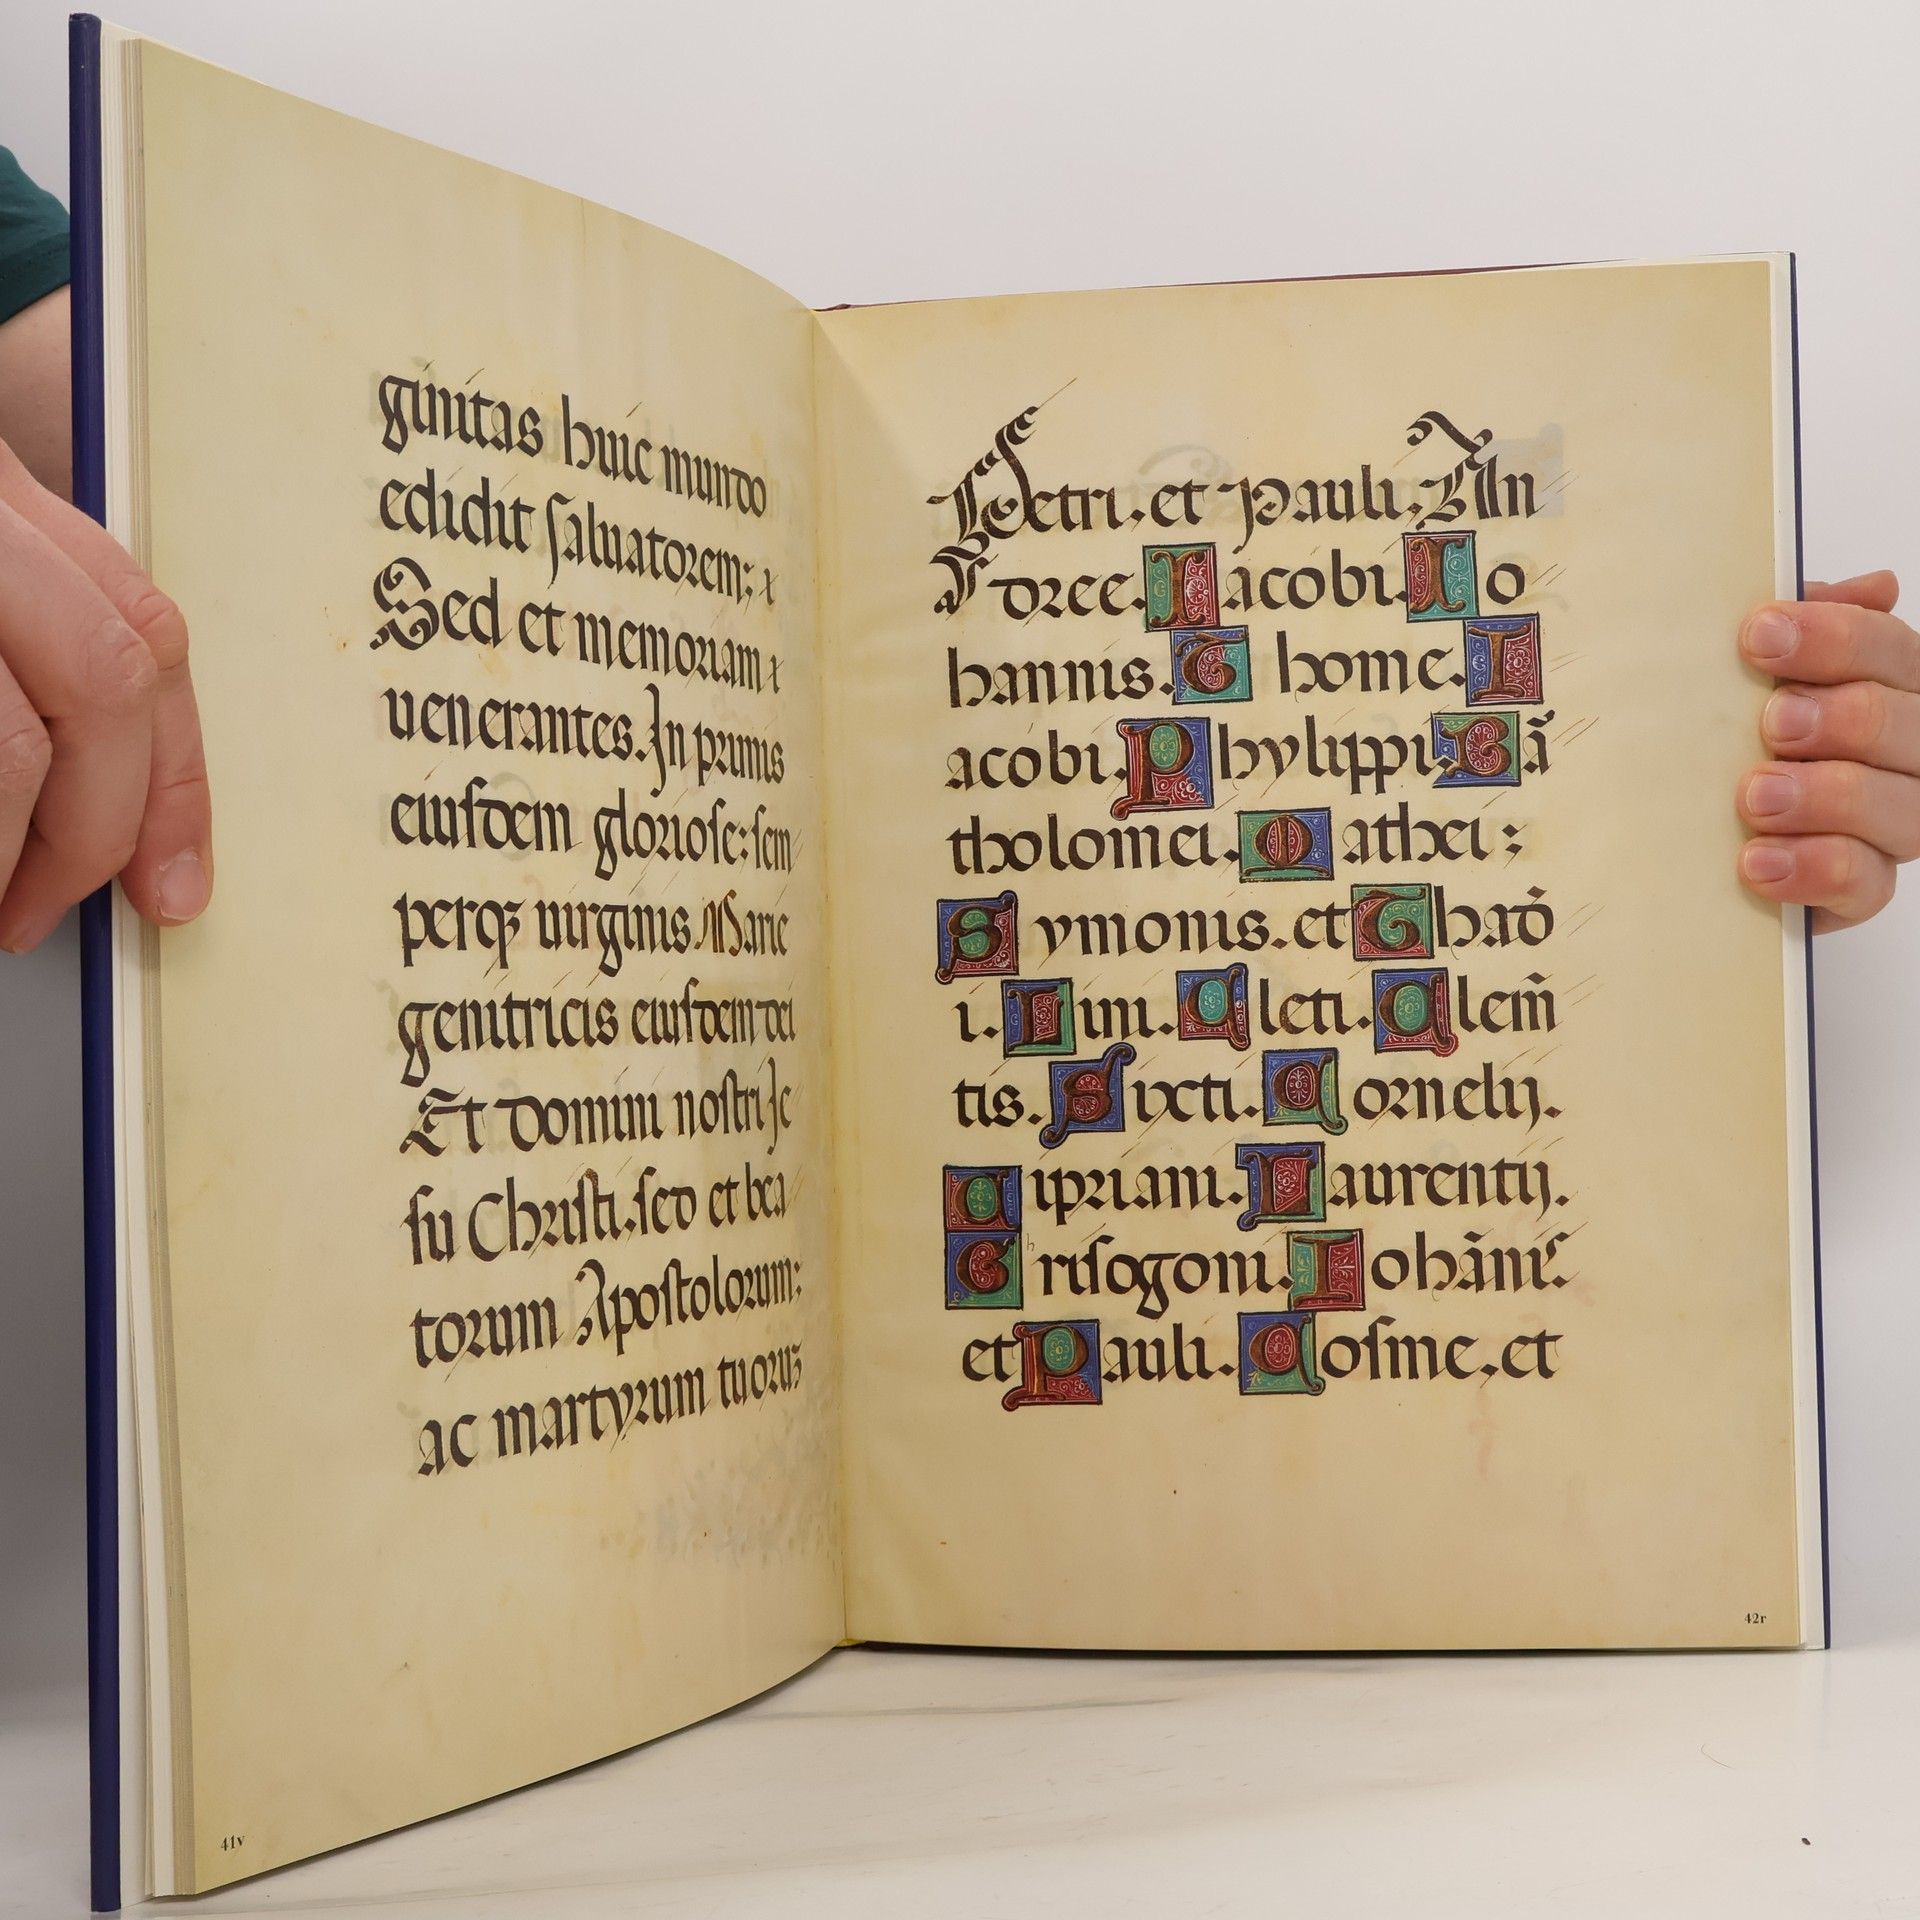 ginitas huic mundo
edidit saluatorem; x
Sed et memoriam x
uenerantes. In primis
eiusdem gloriose: sem
perqꝫ uirginis Marie
genitricis eiusdem dei
Et domini nostri Je
su Christi. sed et bea
torum Apostolorum:
ac martyrum tuoruꝫ
41v
Petri. et Pauli. An
dree. Iacobi. Io
hannis. Thome. I
acobi. Phylippi. Bã
tholomei. Mathei;
Symonis. et Thad̃
i. Lini. Cleti. Clem̃
tis. Sixti. Cornelij.
Cipriani. Laurentij.
Crisogoni. Iohãnis.
h
et Pauli. Cosme. et
42r